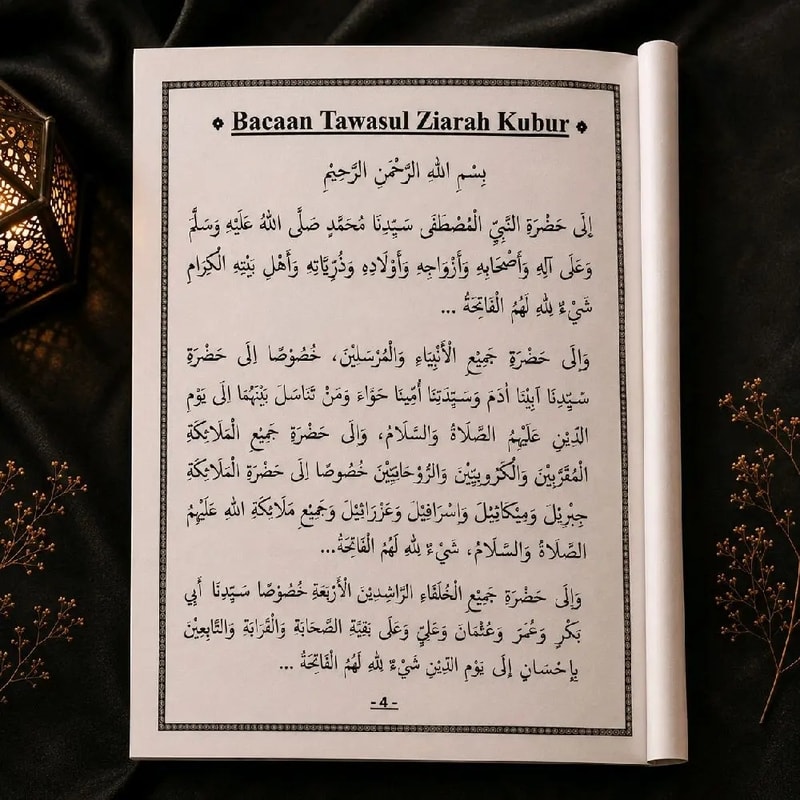 Bacaan Tawasul Ziarah Kubur
بِسْمِ اللهِ الرَّحْمَنِ الرَّحِيْمِ
إِلَى حَضْرَةِ النَّبِيِّ الْمُصْطَفَى سَيِّدِنَا مُحَمَّدٍ صَلَّى اللهُ عَلَيْهِ وَسَلَّمَ
وَعَلَى آلِهِ وَأَصْحَابِهِ وَأَزْوَاجِهِ وَأَوْلَادِهِ وَذُرِّيَّاتِهِ وَأَهْلِ بَيْتِهِ الْكِرَامِ
شَيْءٌ لِلّٰهِ لَهُمُ الْفَاتِحَةُ ...
وَاِلَى حَضْرَةِ جَمِيْعِ الْأَنْبِيَاءِ وَالْمُرْسَلِيْنَ، خُصُوْصًا اِلَى حَضْرَةِ
سَيِّدِنَا اَبِيْنَا اٰدَمَ وَسَيِّدَتِنَا أُمِّنَا حَوَاءَ وَمَنْ تَنَاسَلَ بَيْنَهُمَا اِلَى يَوْمِ
الدِّيْنِ عَلَيْهِمُ الصَّلَاةُ وَالسَّلَامُ، وَاِلَى حَضْرَةِ جَمِيْعِ الْمَلَائِكَةِ
الْمُقَرَّبِيْنَ وَالْكَرُوْبِيِّيْنَ وَالرُّوْحَانِيِّيْنَ خُصُوصًا اِلَى حَضْرَةِ الْمَلَائِكَةِ
جِبْرِيْلَ وَمِيْكَائِيْلَ وَاِسْرَافِيْلَ وَعَزْرَائِيْلَ وَجَمِيْعِ مَلَائِكَةِ اللهِ عَلَيْهِمُ
الصَّلَاةُ وَالسَّلَامُ، شَيْءٌ لِلّٰهِ لَهُمُ الْفَاتِحَةُ...
وَاِلَى حَضْرَةِ جَمِيْعِ الْخُلَفَاءِ الرَّاشِدِيْنَ الْأَرْبَعَةِ خُصُوْصًا سَيِّدِنَا أَبِي
بَكْرٍ وَعُمَرَ وَعُثْمَانَ وَعَلِيٍّ وَعَلَى بَقِيَّةِ الصَّحَابَةِ وَالْقَرَابَةِ وَالتَّابِعِيْنَ
بِإِحْسَانٍ إِلَى يَوْمِ الدِّيْنِ شَيْءٌ لِلّٰهِ لَهُمُ الْفَاتِحَةُ ...
- 4 -